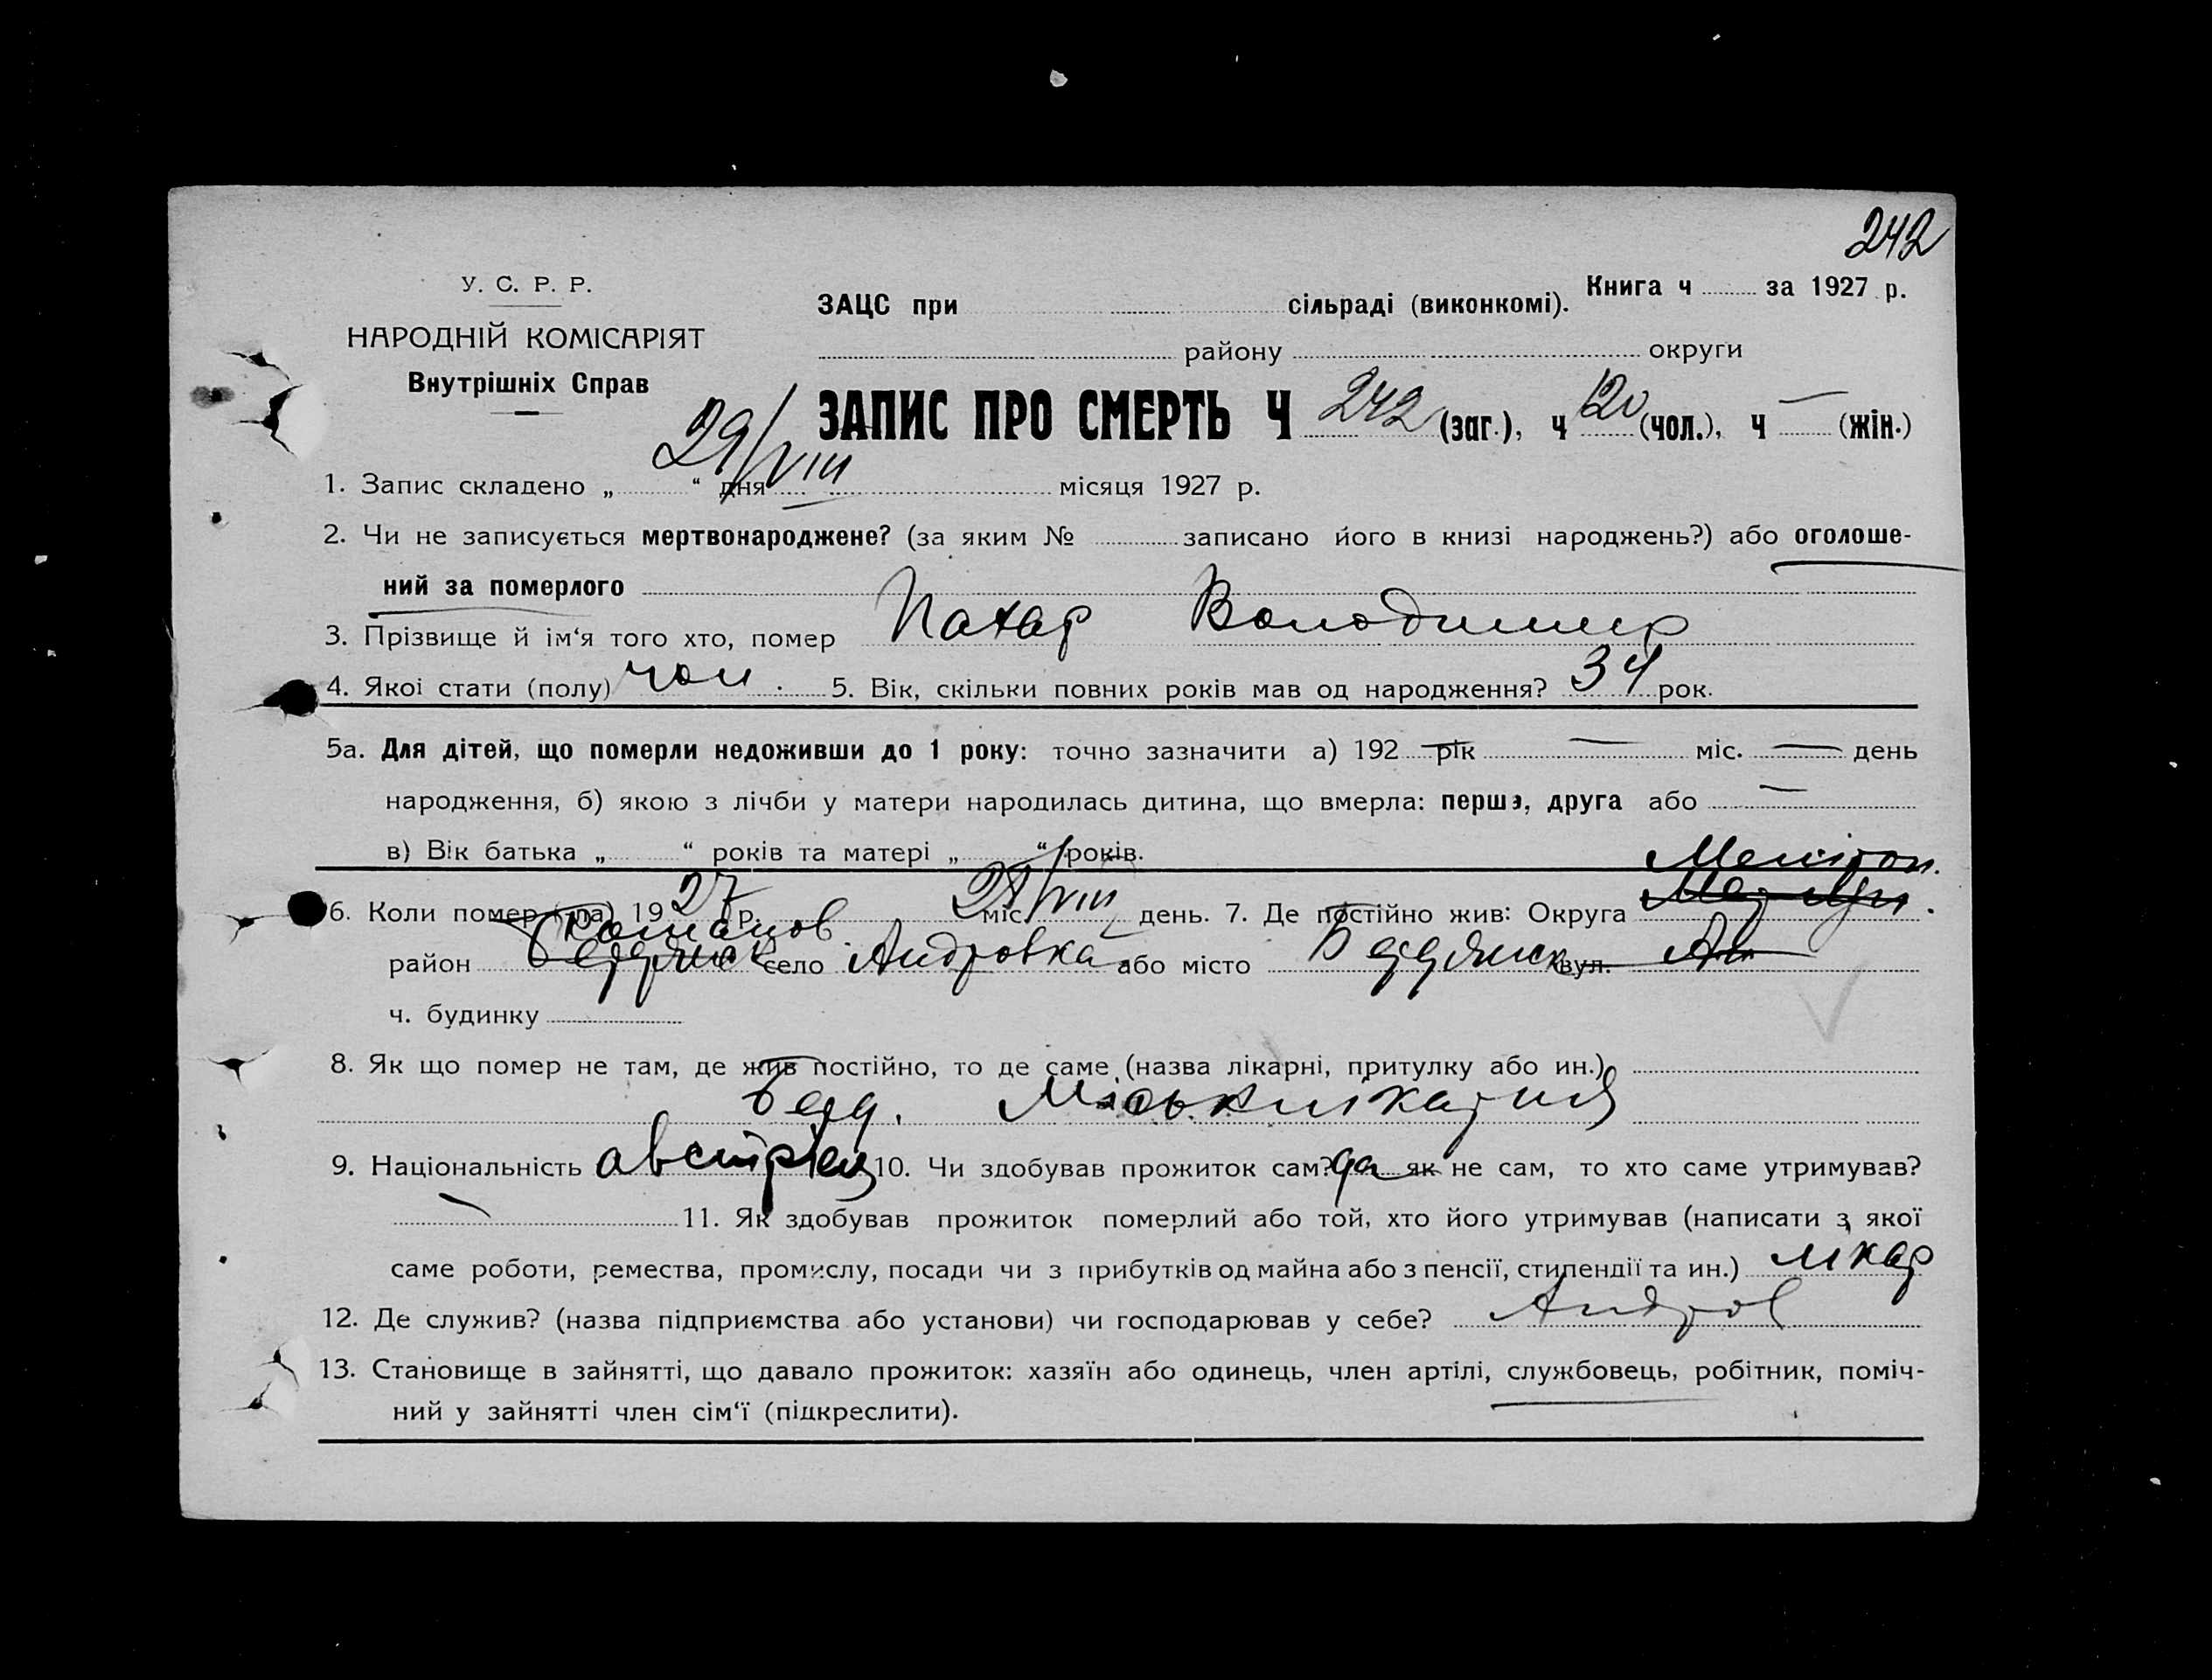 242
У. С. Р. Р.
НАРОДНІЙ КОМІСАРІЯТ
Внутрішніх Справ
Книга ч за 1927 р.
ЗАЦС при сільраді (виконкомі).
району округи
ЗАПИС ПРО СМЕРТЬ Ч 242 (заг.), ч 120 (чол.), ч — (жін.)
1. Запис складено „ “ дня 29/VIII місяця 1927 р.
2. Чи не записується мертвонароджене? (за яким № записано його в книзі народжень?) або оголоше-
ний за померлого
3. Прізвище й ім‘я того хто, помер Пахар Володимир
4. Якоі стати (полу) чол. 5. Вік, скільки повних років мав од народження? 34 рок.
5а. Для дітей, що померли недоживши до 1 року: точно зазначити а) 192 — рік — міс. — день
народження, б) якою з лічби у матери народилась дитина, що вмерла: перша, друга або —
в) Вік батька „ “ років та матері „ “ років.
Меліtoп.
6. Коли помер (ла) 1927 р. міс. VIII день. 7. Де постійно жив: Округа
район Бердянск село Андровка або місто Бердянск вул. Ан
ч. будинку
8. Як що помер не там, де жив постійно, то де саме (назва лікарні, притулку або ин.)
Берд. Міськлікарня
9. Національність австрієц 10. Чи здобував прожиток сам? да як не сам, то хто саме утримував?
— 11. Як здобував прожиток померлий або той, хто його утримував (написати з якої
саме роботи, ремества, промислу, посади чи з прибутків од майна або з пенсії, стипендії та ин.) лікар
12. Де служив? (назва підприємства або установи) чи господарював у себе? Андров
13. Становище в зайнятті, що давало прожиток: хазяїн або одинець, член артілі, службовець, робітник, поміч-
ний у зайнятті член сім‘ї (підкреслити).